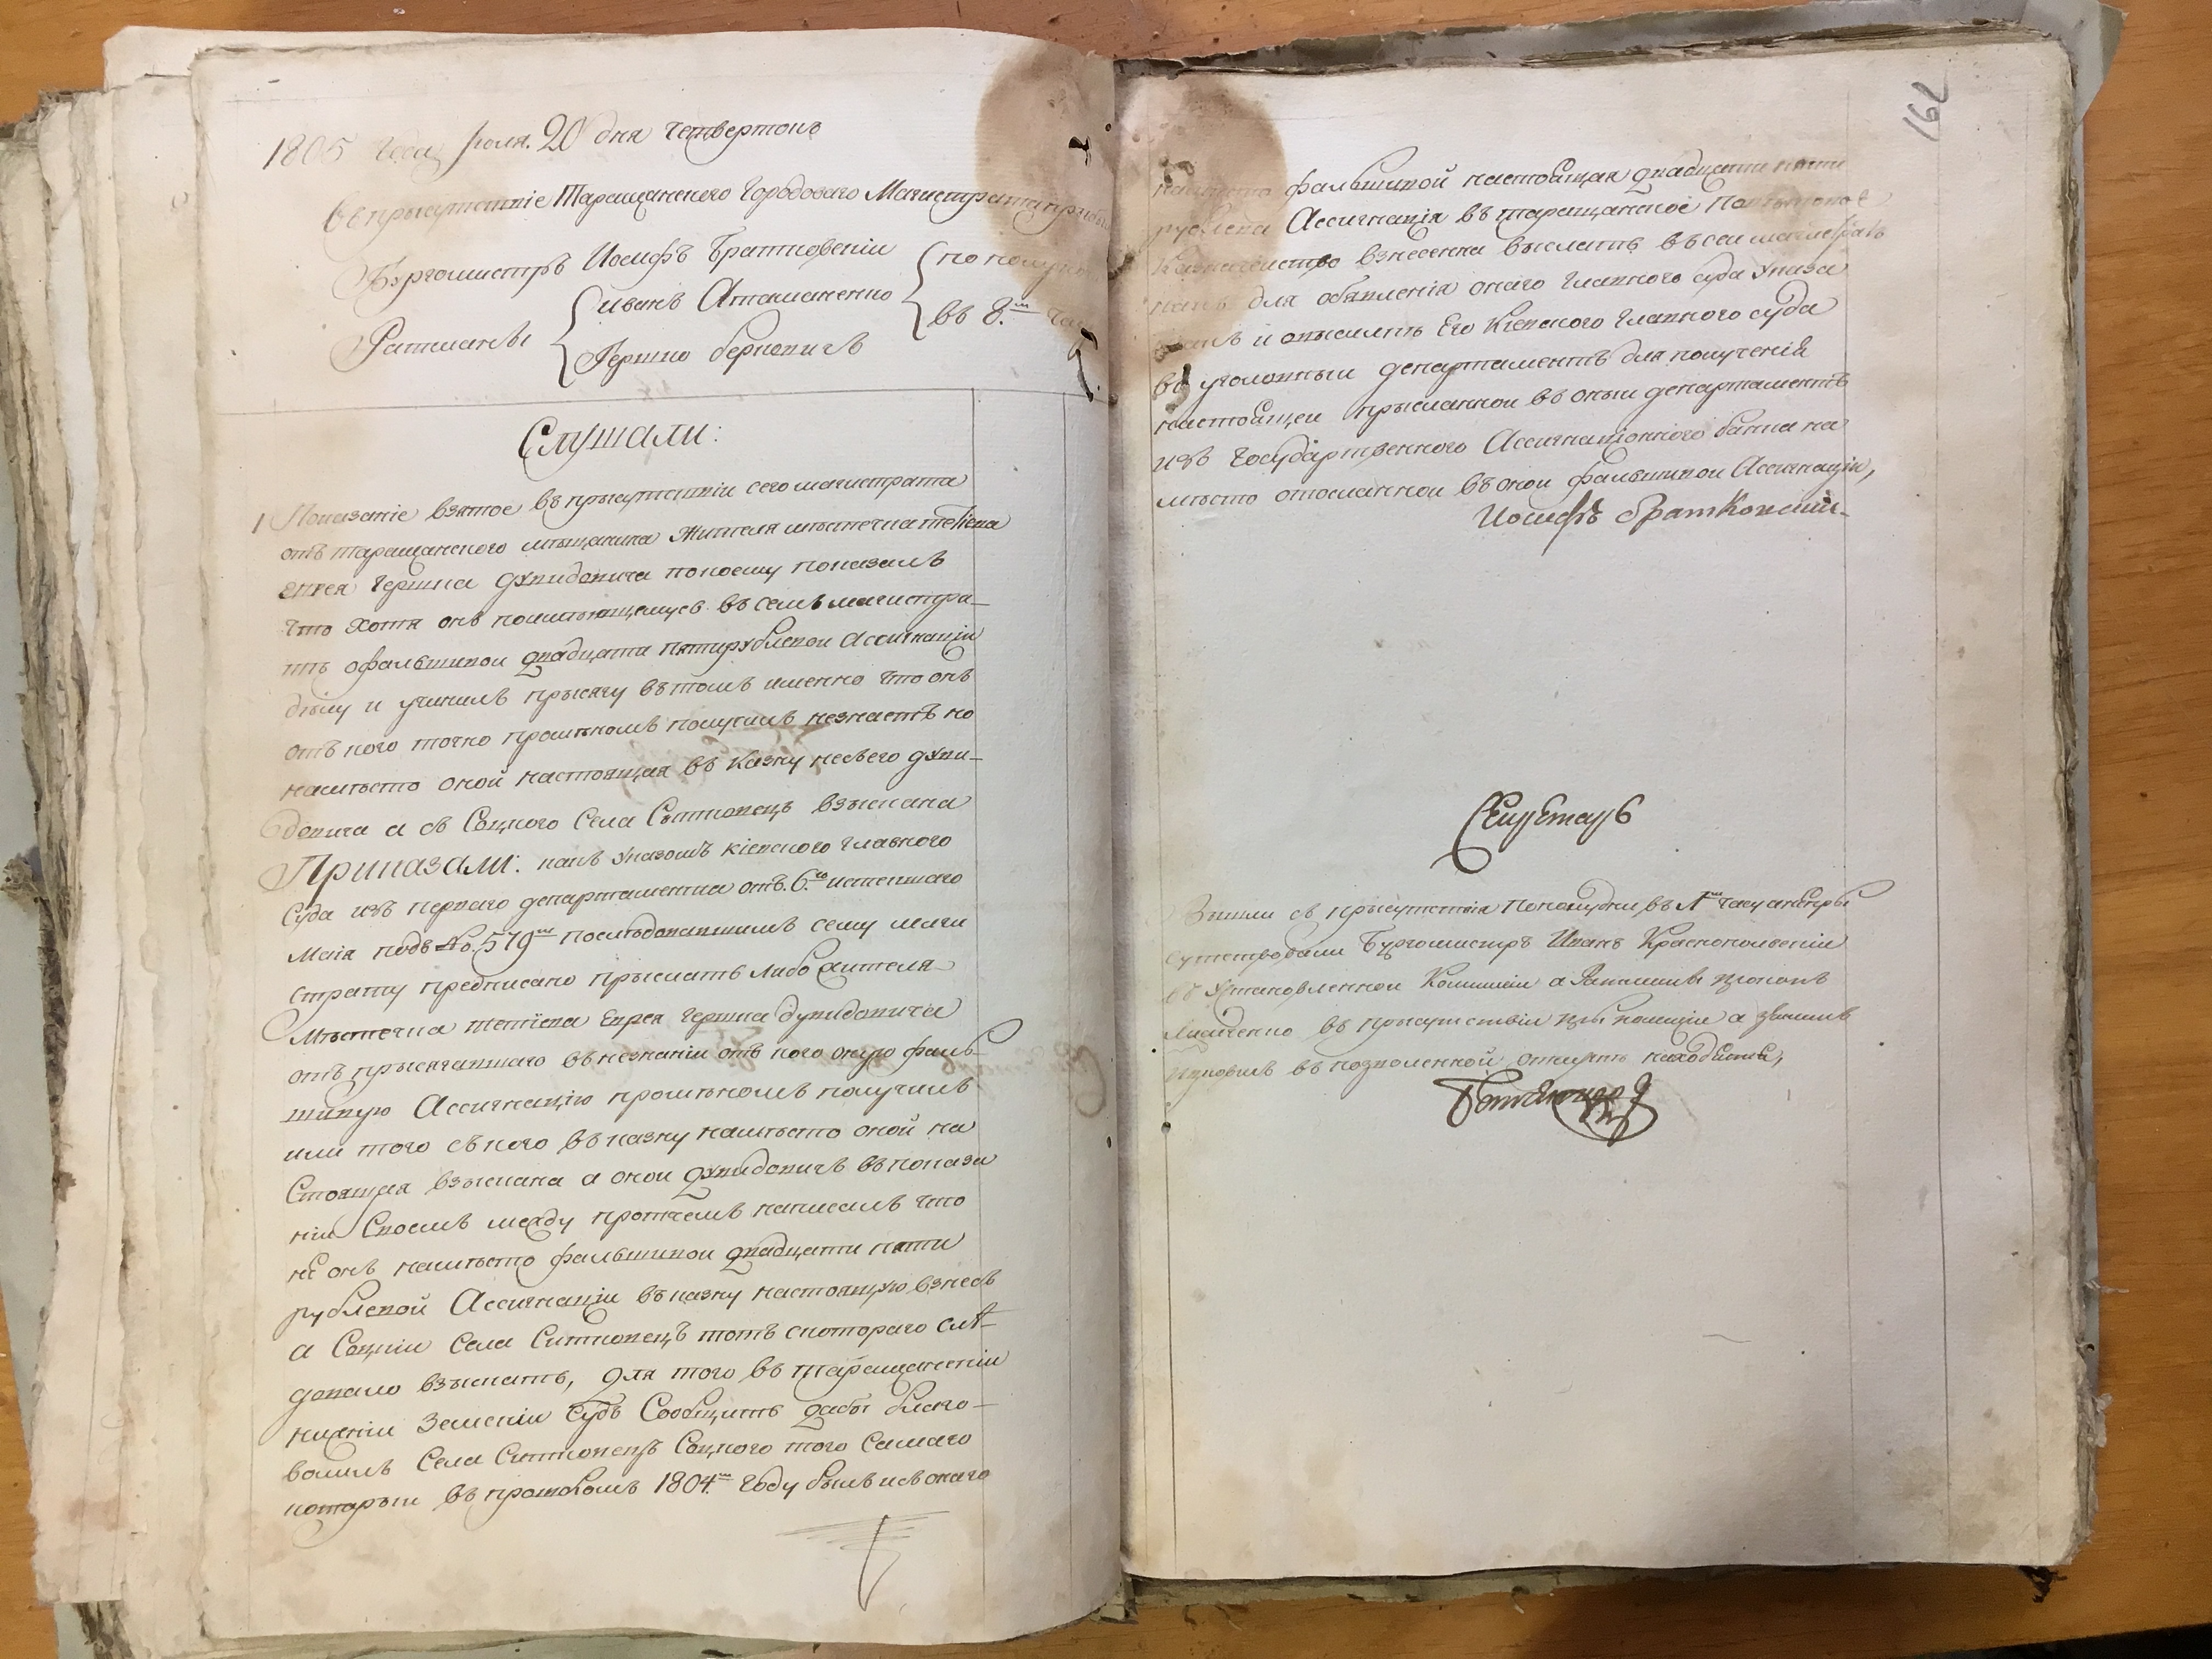 1805 Года Июля 20 дня Четвертокъ
Въ прысутствіе Таращанского Городоваго Магистрата прибы
Бургомистръ Иосифъ Братковскій
по полу
Ратманы
Иванъ Атаманенко
Гершко Берковичъ
въ 8.м
Слушали:
1 Показаніе взятое въ прысутствіи сего магистрата
отъ таращанского мѣщанина Жителя мѣстечка тетіева
Еврея Гершка Духвидовича по коему показалъ
что хотя онъ по имѣющемусь въ семъ магистра-
тѣ о фальшивои двадцати пятирублевои Ассигнаціи
дѣлу и учинилъ прысягу въ томъ именно что онъ
отъ кого точно промѣномъ получилъ незнаетъ но
намѣсто оной настоящая въ казну несъ его Духви-
довича а съ Соцкого Села Сытковецъ взыскана
Приказали: какъ Указомъ Кіевского Главного
Суда изъ перваго департамента отъ 6.го истекшаго
Маія подъ No. 579м последовавшимъ сему маги
страту предписано прыслать либо жителя
Мѣстечка тетіева Еврея Гершка Духвидовича
отъ прысягавшаго въ незнаніи отъ кого оную фаль-
шивую Ассигнацію промѣномъ получилъ
или того съ кого въ казну намѣсто оной на
Стоящая взыскана а онои Духвидовичъ въ показа
ніи Своемъ между протчемъ написалъ что
не онъ намѣсто фальшивои двадцати пяти
рублевой Ассигнаціи въ казну настоящую взнесъ
а Соцкіи Села Сытковецъ тотъ с котораго слѣ-
довало взыскать, для того въ таращанскіи
нижніи Земскіи Судъ Сообщить дабы благо-
волилъ Села Сытковецъ Соцкого того самаго
которыи въ прошломъ 1804.м Году былъ и съ онаго
162
намѣсто фальшивой настоящая двадцати пяти
рублева Ассигнація въ таращанское Повѣтовое
Казначейство взнесенна выслать въ сеи магистратъ
для обявленія онаго Главного суда Указа
и отослать Его Кіевского Главного суда
въ уголовныи департаментъ для полученія
настоящеи прысланнои въ оныи департаментъ
изъ Государственного Ассигнаціонного банка на
мѣсто отосланнои въ онои фальшивои Ассигнаціи,
Иосифъ Братковскій
Секретарь
Вышли съ прысутствія Пополудни въ 1м часу а непры
сутствовали Бургомистръ Иванъ Краснопольскіи
въ Установленнои Комиссіи а Ратманы Прокопъ
въ прысутствіи при полиціи а
въ позволенной отпускъ находился,